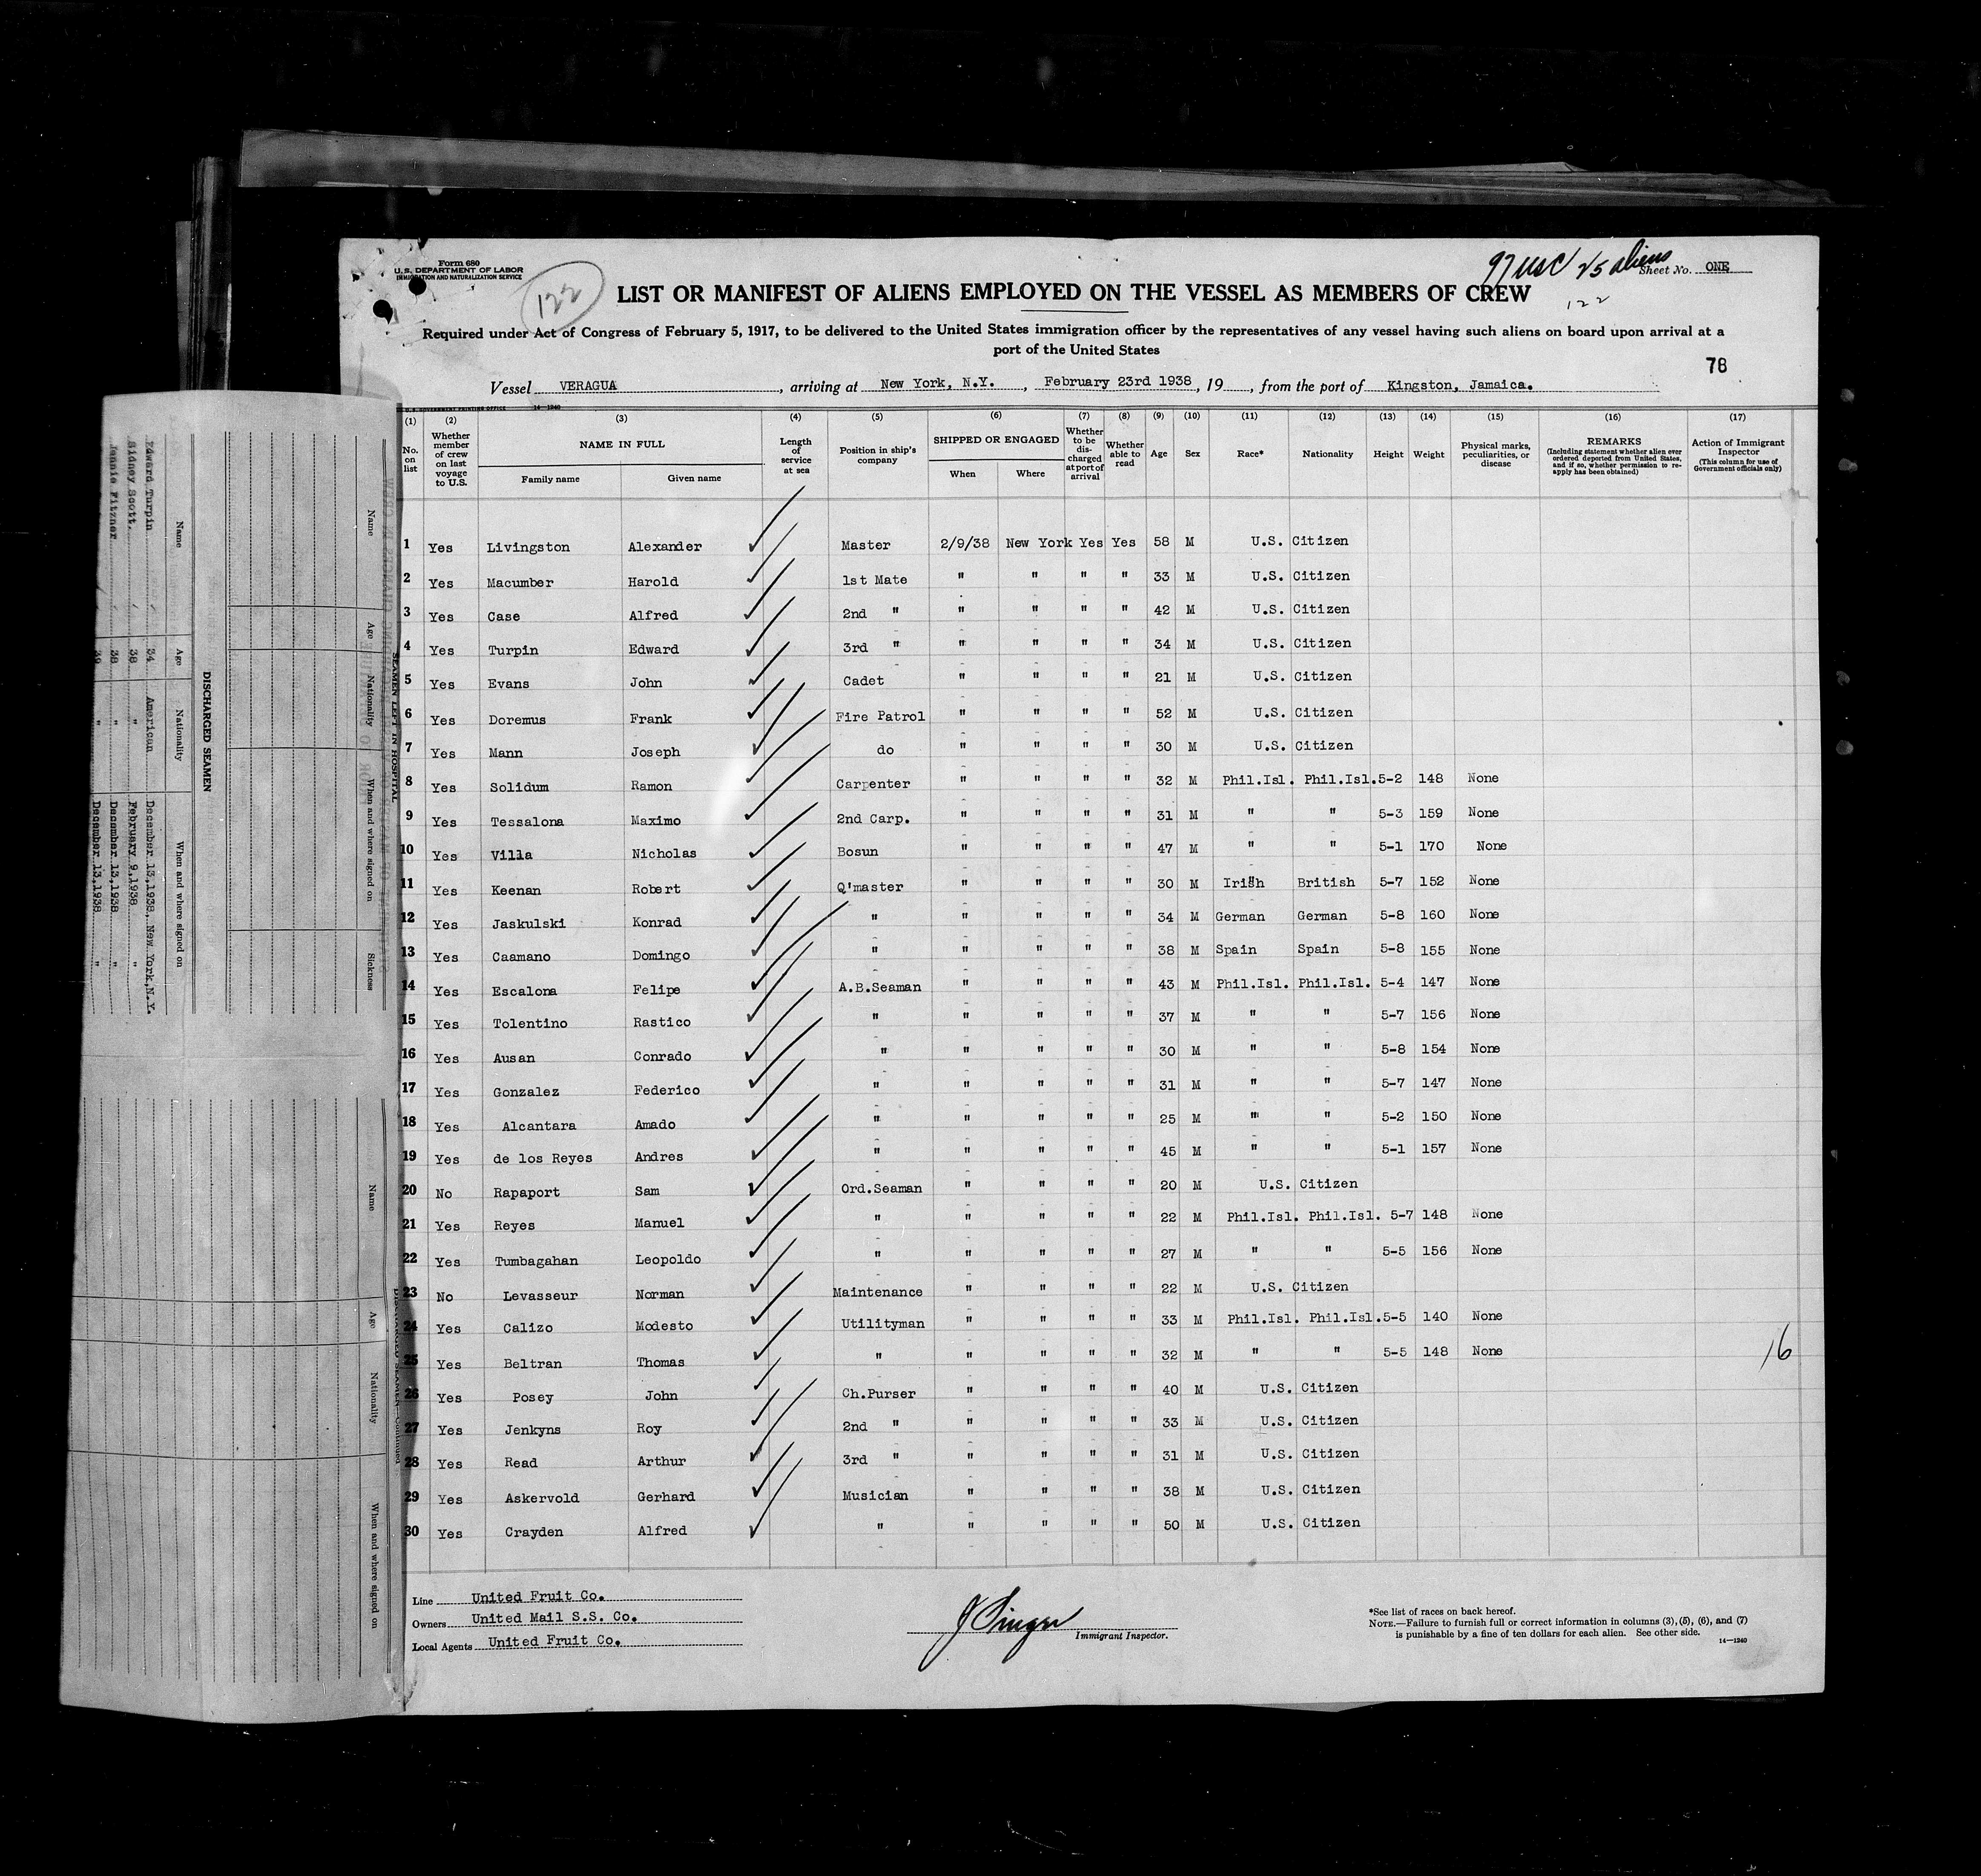 Form 680
U. S. DEPARTMENT OF LABOR
IMMIGRATION AND NATURALIZATION SERVICE
122
97 USC 25 aliens
Sheet No. ONE
LIST OR MANIFEST OF ALIENS EMPLOYED ON THE VESSEL AS MEMBERS OF CREW
122
Required under Act of Congress of February 5, 1917, to be delivered to the United States immigration officer by the representatives of any vessel having such aliens on board upon arrival at a
port of the United States
78
Vessel VERAGUA, arriving at New York, N.Y., February 23rd 1938, 19, from the port of Kingston, Jamaica.
14—1240
(1) (2) (3) (4) (5) (6) (7) (8) (9) (10) (11) (12) (13) (14) (15) (16) (17)
No. on list
Whether member of crew on last voyage to U.S.
NAME IN FULL
Family name Given name
Length of service at sea
Position in ship's company
SHIPPED OR ENGAGED
When Where
Whether to be discharged at port of arrival
Whether able to read
Age
Sex
Race*
Nationality
Height
Weight
Physical marks, peculiarities, or disease
REMARKS
(Including statement whether alien ever ordered deported from United States, and if so, whether permission to re-apply has been obtained)
Action of Immigrant Inspector
(This column for use of Government officials only)
1 Yes Livingston Alexander Master 2/9/38 New York Yes Yes 58 M U.S. Citizen
2 Yes Macumber Harold 1st Mate " " " " 33 M U.S. Citizen
3 Yes Case Alfred 2nd " " " " " 42 M U.S. Citizen
4 Yes Turpin Edward 3rd " " " " " 34 M U.S. Citizen
5 Yes Evans John Cadet " " " " 21 M U.S. Citizen
6 Yes Doremus Frank Fire Patrol " " " " 52 M U.S. Citizen
7 Yes Mann Joseph do " " " " 30 M U.S. Citizen
8 Yes Solidum Ramon Carpenter " " " " 32 M Phil.Isl. Phil.Isl. 5-2 148 None
9 Yes Tessalona Maximo 2nd Carp. " " " " 31 M " " 5-3 159 None
10 Yes Villa Nicholas Bosun " " " " 47 M " " 5-1 170 None
11 Yes Keenan Robert Q'master " " " " 30 M Irish British 5-7 152 None
12 Yes Jaskulski Konrad " " " " " 34 M German German 5-8 160 None
13 Yes Caamano Domingo " " " " " 38 M Spain Spain 5-8 155 None
14 Yes Escalona Felipe A.B.Seaman " " " " 43 M Phil.Isl. Phil.Isl. 5-4 147 None
15 Yes Tolentino Rastico " " " " " 37 M " " 5-7 156 None
16 Yes Ausan Conrado " " " " " 30 M " " 5-8 154 None
17 Yes Gonzalez Federico " " " " " 31 M " " 5-7 147 None
18 Yes Alcantara Amado " " " " " 25 M " " 5-2 150 None
19 Yes de los Reyes Andres " " " " " 45 M " " 5-1 157 None
20 No Rapaport Sam Ord.Seaman " " " " 20 M U.S. Citizen
21 Yes Reyes Manuel " " " " " 22 M Phil.Isl. Phil.Isl. 5-7 148 None
22 Yes Tumbagahan Leopoldo " " " " " 27 M " " 5-5 156 None
23 No Levasseur Norman Maintenance " " " " 22 M U.S. Citizen
24 Yes Calizo Modesto Utilityman " " " " 33 M Phil.Isl. Phil.Isl. 5-5 140 None
25 Yes Beltran Thomas " " " " " 32 M " " 5-5 148 None 16
26 Yes Posey John Ch.Purser " " " " 40 M U.S. Citizen
27 Yes Jenkyns Roy 2nd " " " " " 33 M U.S. Citizen
28 Yes Read Arthur 3rd " " " " " 31 M U.S. Citizen
29 Yes Askervold Gerhard Musician " " " " 38 M U.S. Citizen
30 Yes Crayden Alfred " " " " " 50 M U.S. Citizen
Line United Fruit Co.
Owners United Mail S.S. Co.
Local Agents United Fruit Co.
J Singer
Immigrant Inspector.
*See list of races on back hereof.
NOTE.—Failure to furnish full or correct information in columns (3), (5), (6), and (7)
is punishable by a fine of ten dollars for each alien. See other side.
14—1240
SEAMEN LEFT IN HOSPITAL
Name Age Nationality When and where signed on Sickness
DISCHARGED SEAMEN
Name Age Nationality When and where signed on
Edward Turpin 34 American December 13,1938, New York,N.Y.
Sidney Scott. 38 " February 9,1938 "
Jennie Fitzner 38 " December 13,1938 "
39 " December 13,1938 "
Name Age Nationality When and where signed on